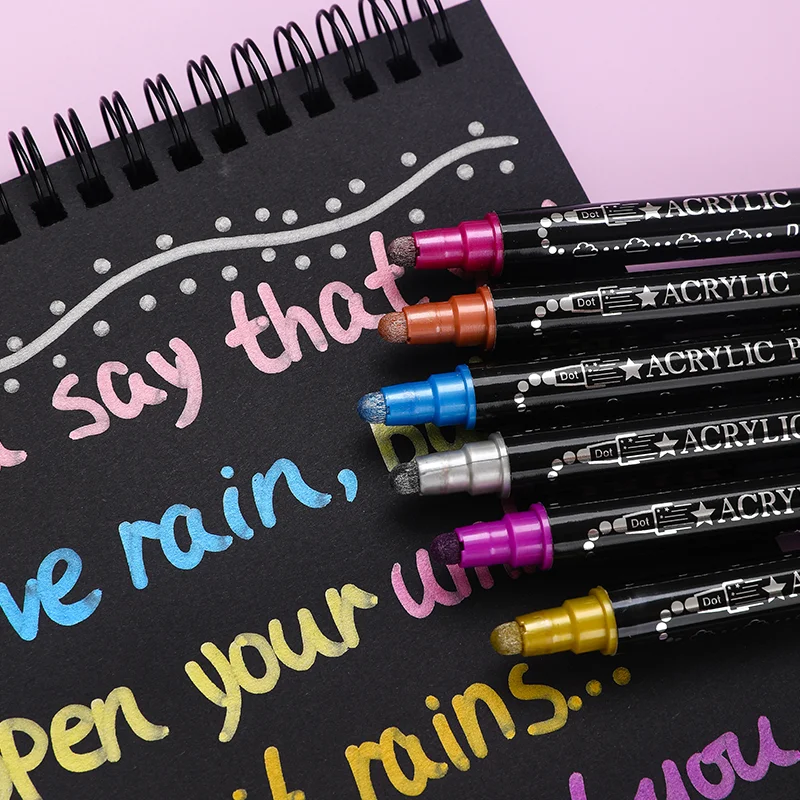 say that
rain, bu
pen your um
it rains...
you
Dot ACRYLIC
Dot ACRYLIC
Dot ACRYLIC P
Dot ACRYLIC
Dot ACRY
Dot A